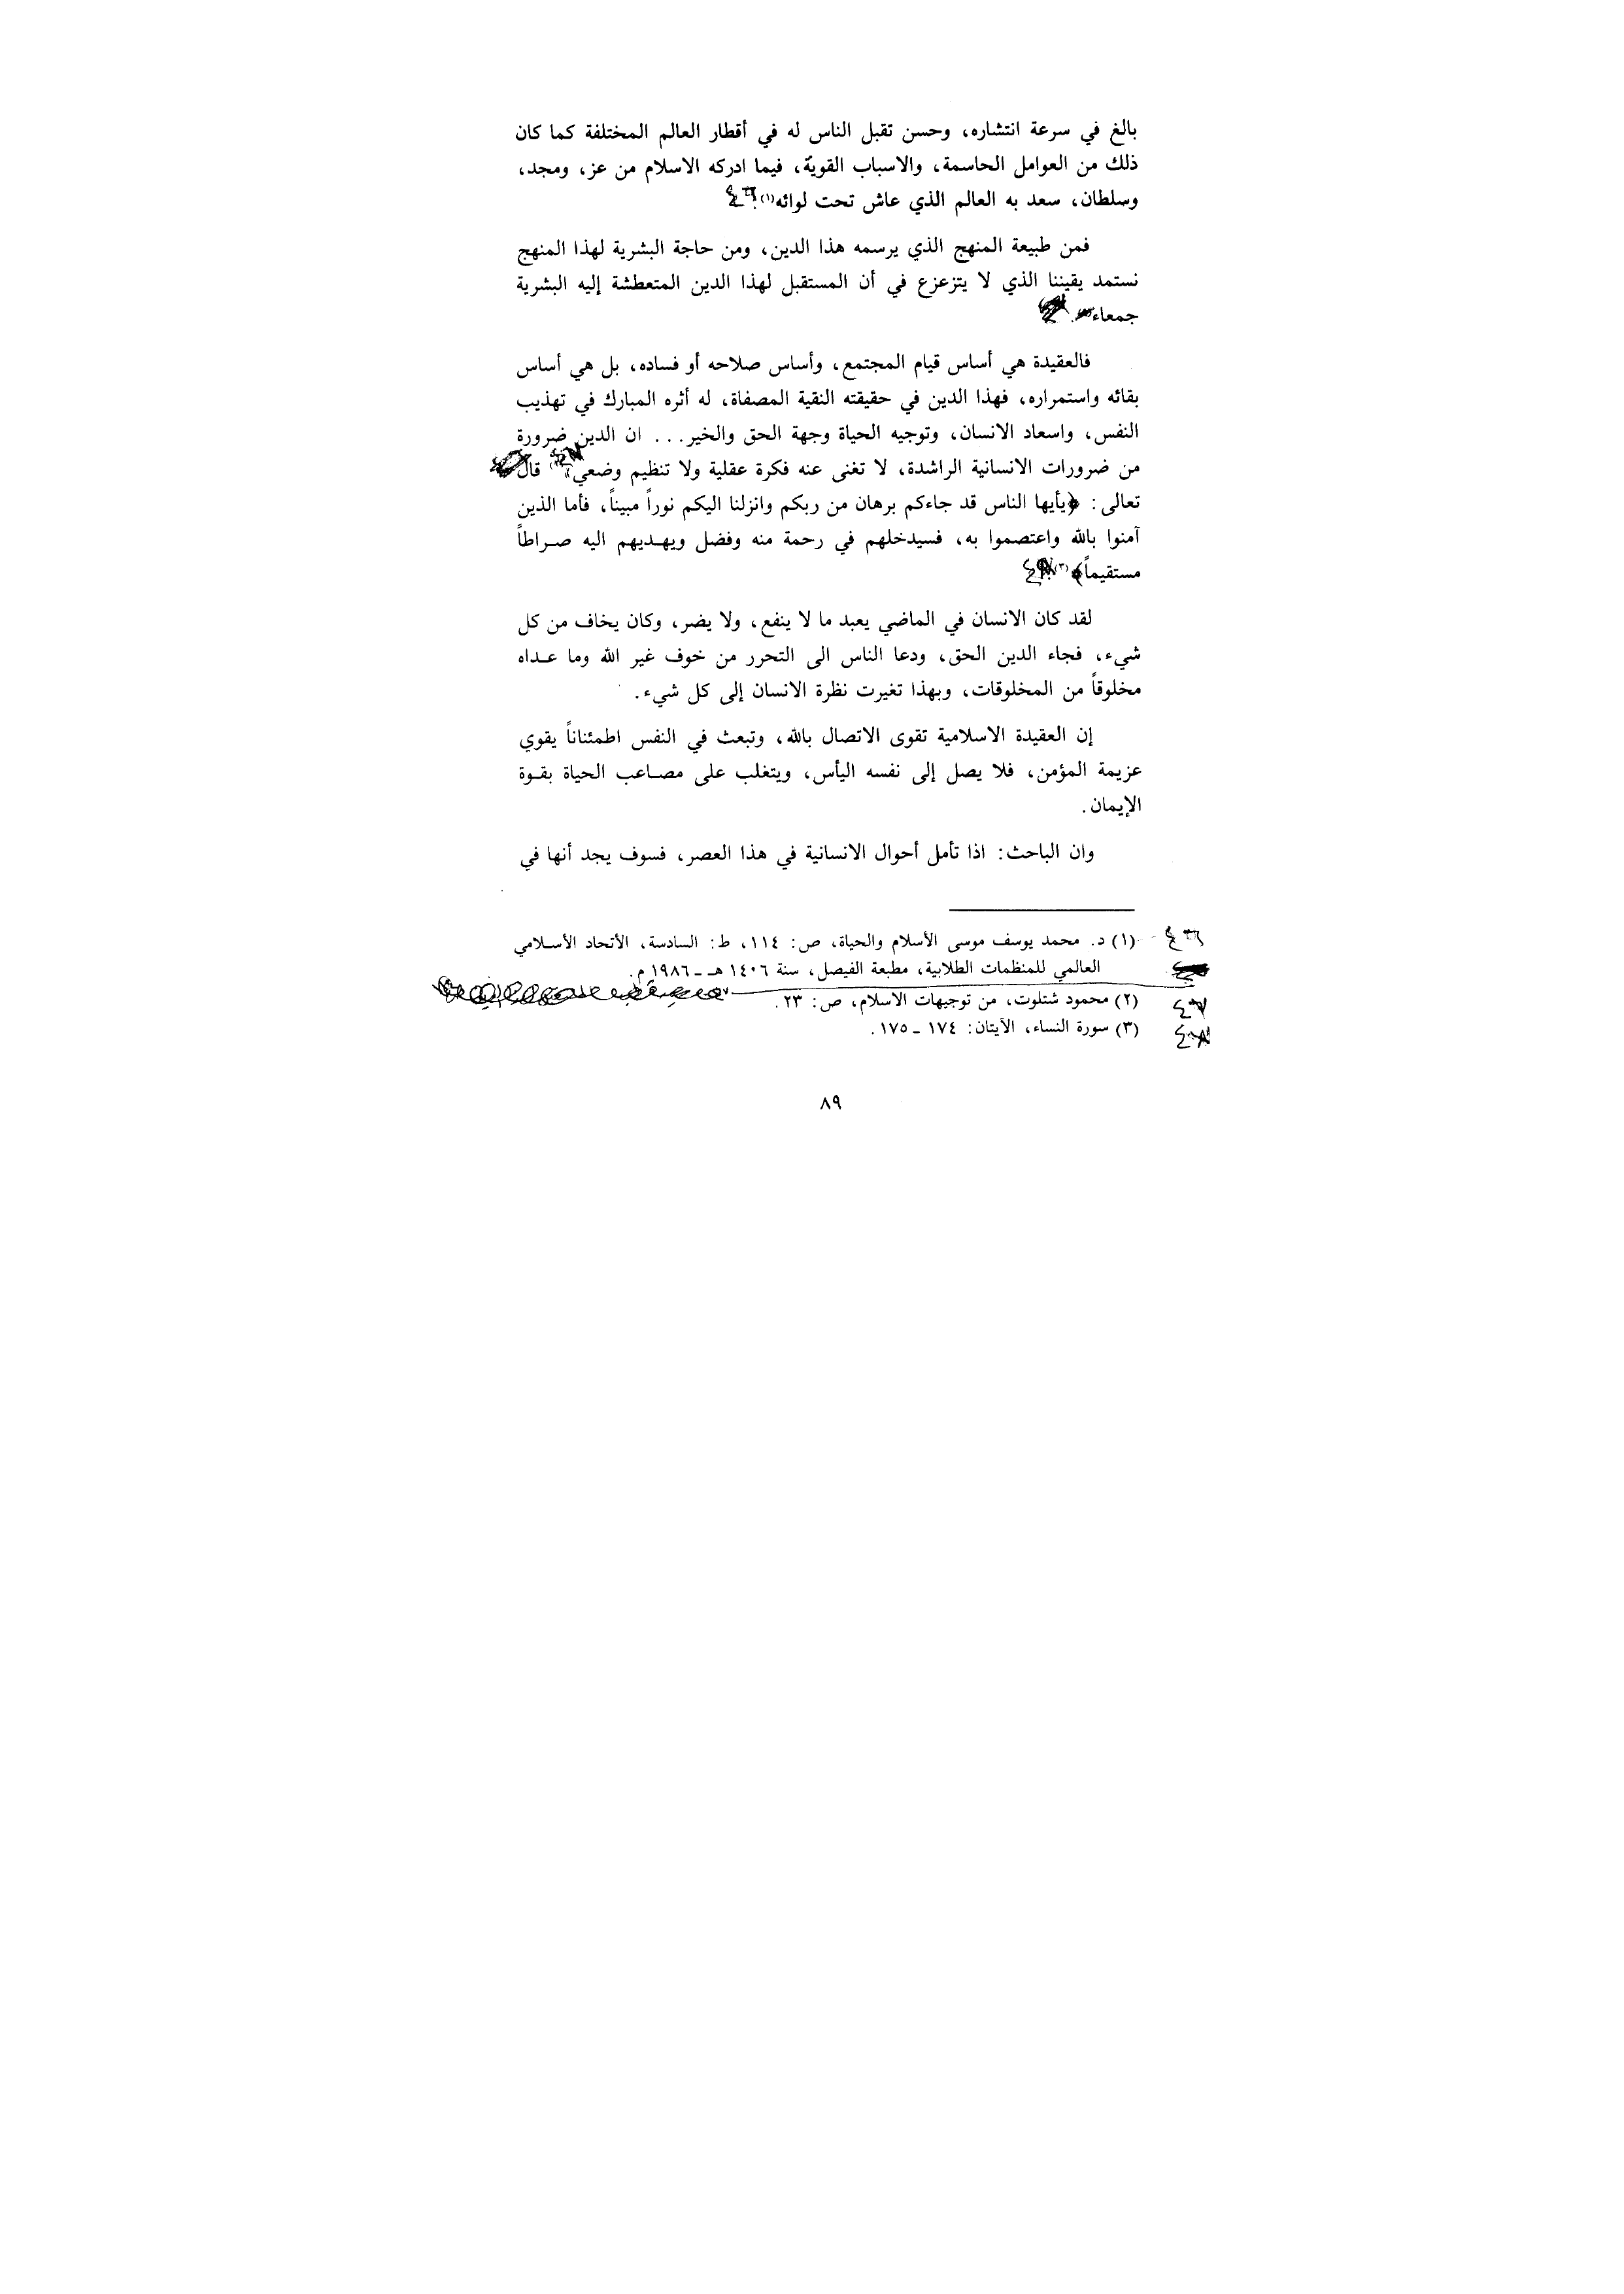 بالغ في سرعة انتشاره، وحسن تقبل الناس له في أقطار العالم المختلفة كما كان
ذلك من العوامل الحاسمة، والاسباب القويّة، فيما ادركه الاسلام من عز، ومجد،
وسلطان، سعد به العالم الذي عاش تحت لوائه(١).
فمن طبيعة المنهج الذي يرسمه هذا الدين، ومن حاجة البشرية لهذا المنهج
نستمد يقيننا الذي لا يتزعزع في أن المستقبل لهذا الدين المتعطشة إليه البشرية
جمعاء
فالعقيدة هي أساس قيام المجتمع، وأساس صلاحه أو فساده، بل هي أساس
بقائه واستمراره، فهذا الدين في حقيقته النقية المصفاة، له أثره المبارك في تهذيب
النفس، واسعاد الانسان، وتوجيه الحياة وجهة الحق والخير... ان الدين ضرورة
من ضرورات الانسانية الراشدة، لا تغنى عنه فكرة عقلية ولا تنظيم وضعي، قال
تعالى: ﴿يأيها الناس قد جاءكم برهان من ربكم وانزلنا اليكم نوراً مبيناً، فأما الذين
آمنوا بالله واعتصموا به، فسيدخلهم في رحمة منه وفضل ويهديهم اليه صراطاً
مستقيماً﴾(٣)
لقد كان الانسان في الماضي يعبد ما لا ينفع، ولا يضر، وكان يخاف من كل
شيء، فجاء الدين الحق، ودعا الناس الى التحرر من خوف غير الله وما عداه
مخلوقاً من المخلوقات، وبهذا تغيرت نظرة الانسان إلى كل شيء.
إن العقيدة الاسلامية تقوى الاتصال بالله، وتبعث في النفس اطمئناناً يقوي
عزيمة المؤمن، فلا يصل إلى نفسه اليأس، ويتغلب على مصاعب الحياة بقوة
الإيمان.
وان الباحث: اذا تأمل أحوال الانسانية في هذا العصر، فسوف يجد أنها في
(١) د. محمد يوسف موسى الأسلام والحياة، ص: ١١٤، ط: السادسة، الأتحاد الأسلامي
العالمي للمنظمات الطلابية، مطبعة الفيصل، سنة ١٤٠٦ هـ ـ ١٩٨٦ م.
(٢) محمود شتلوت، من توجيهات الاسلام، ص: ٢٣.
(٣) سورة النساء، الآيتان: ١٧٤ ـ ١٧٥.
٨٩